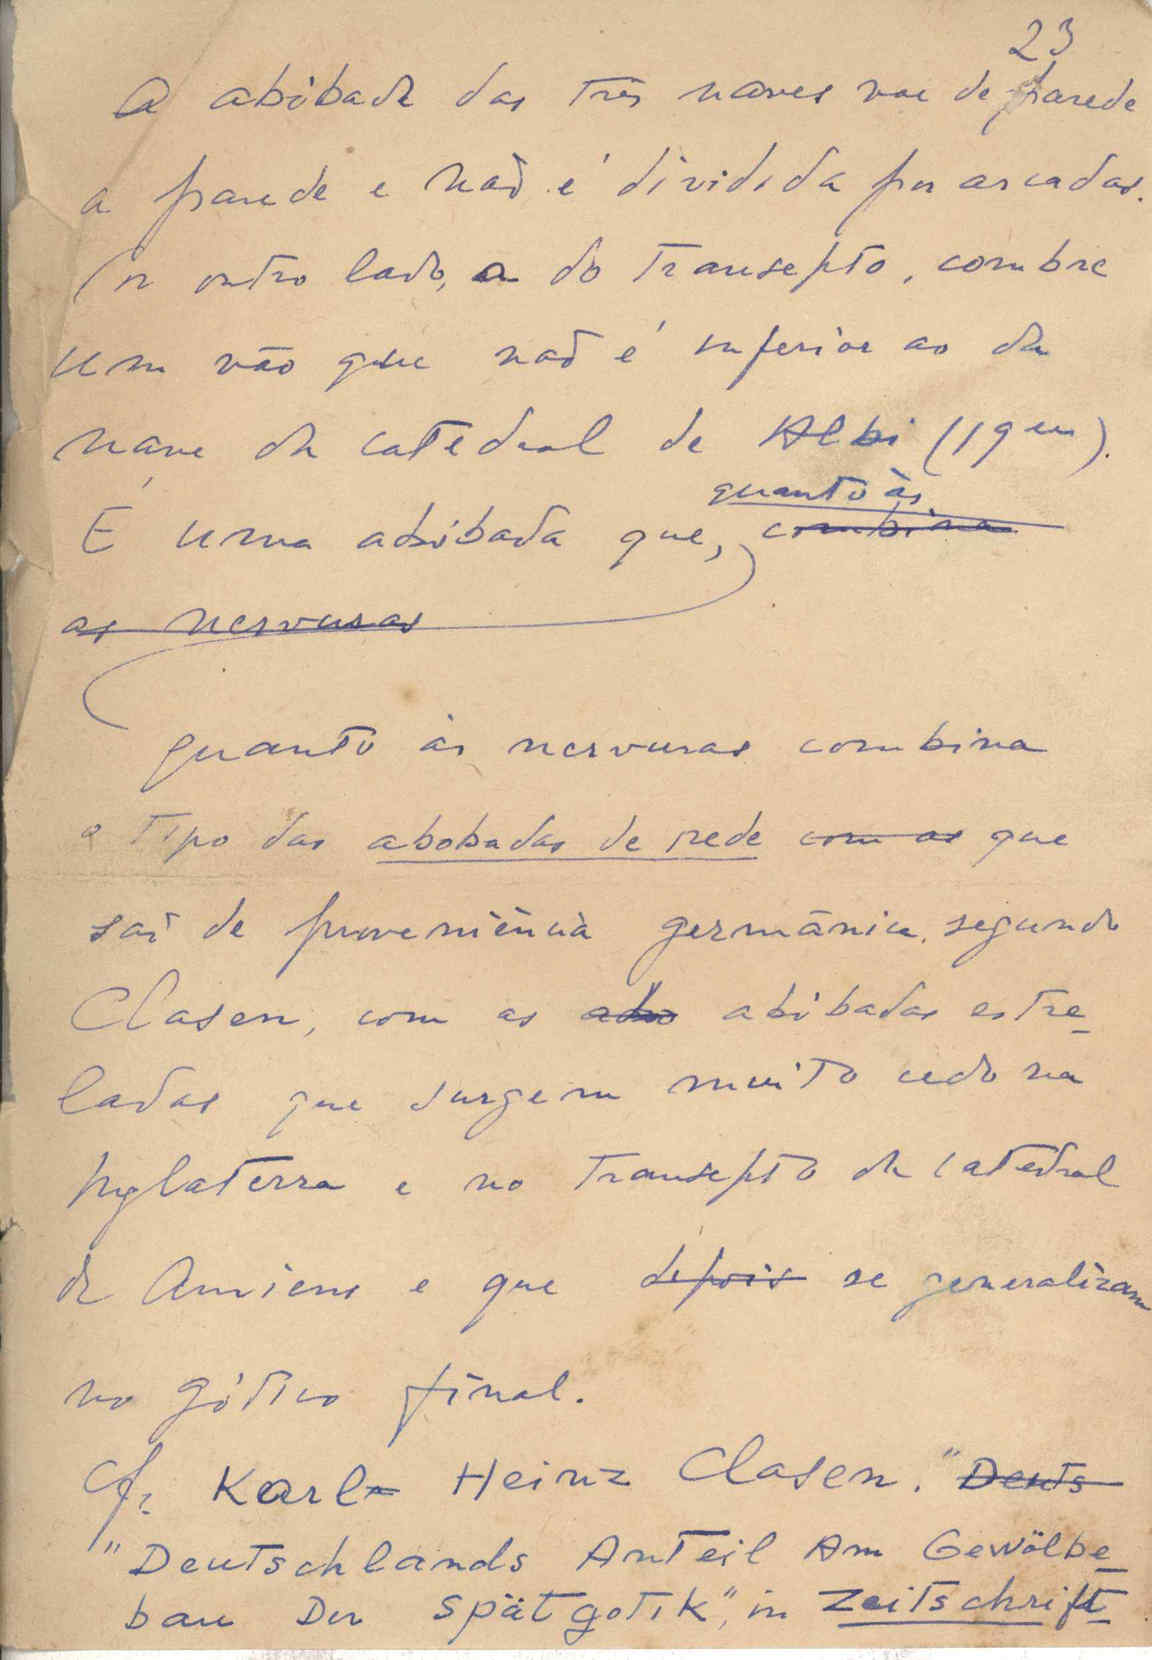 23
A abóbada das três naves vae de parede
a parede e não é dividida por arcadas.
Por outro lado, a do transepto, combre
um vão que não é inferior ao da
nave da catedral de Albi (19m).
quanto às
É uma abóbada que, combina
as nervuras
quanto às nervuras combina
o tipo das abobadas de rede com as que
saí de proveniência germânica, segundo
Clasen, com as abo abóbadas estre-
ladas que surgem muito cedo na
Inglaterra e no transepto da catedral
de Amiens e que depois se generalizam
no gótico final.
Cf. Karl- Heinz Clasen. "Deuts
"Deutschlands Anteil Am Gewölbe-
bau Der Spätgotik", in Zeitschrift